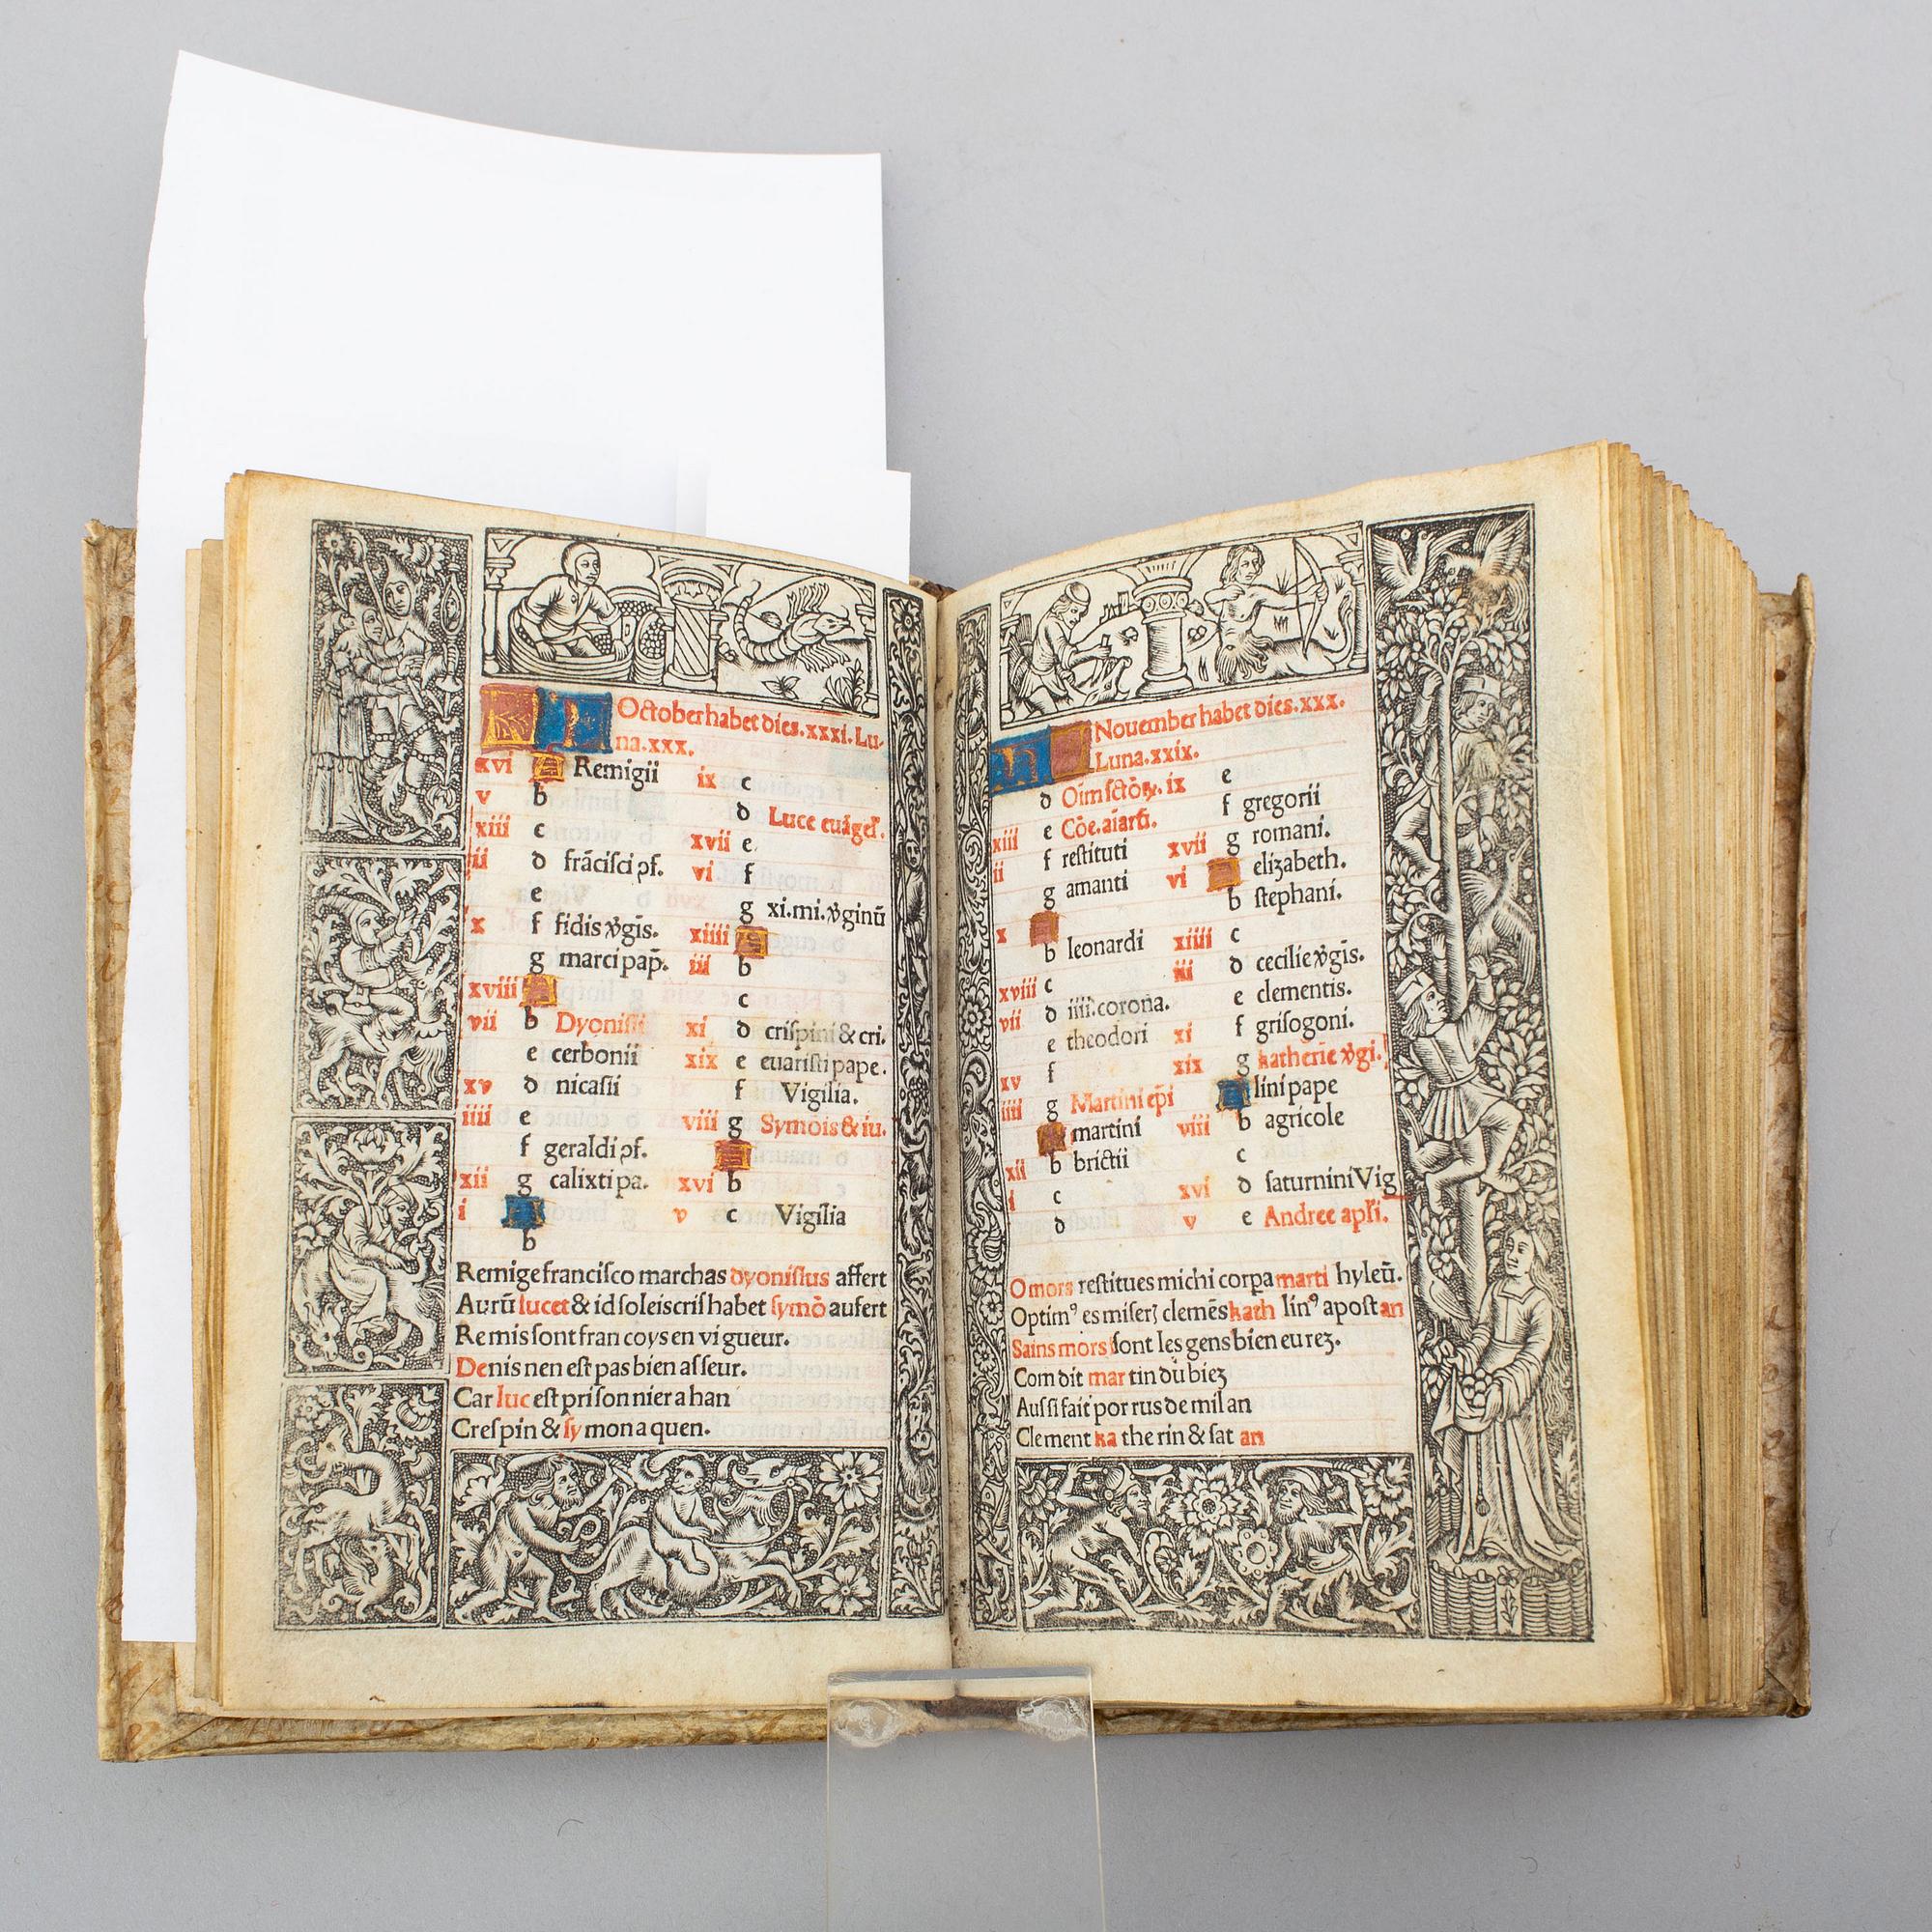 October habet dies.xxxi. Lu-
na.xxx.
xvi A Remigii
v b
xiii c
ii d frãcisci ꝯf.
e
x f fidis v̄gis.
g marci pap̄.
xviii A
vii b Dyonisii
c cerbonii
xv d nicasii
iiii e
f geraldi ꝯf.
xii g calixti pa.
i A
b
ix c
d Luce euãgel̄.
xvii e
vi f
g xi.mi.v̄ginũ
xiiii A
iii b
c
xi d crispini & cri.
xix e euaristi pape.
f Vigilia.
viii g Symõis & iu.
A
xvi b
v c Vigilia
Remige francisco marchas dyonisius affert
Aurũ lucet & id soleiscris habet symõ aufert
Remis sont fran coys en vi gueur.
Denis nen est pas bien as seur.
Car luc est pri son nier a han
Crespin & sy mon a quen.
November habet dies.xxx.
Luna.xxix.
d Oĩm sctõꝝ. ix
xiii e Cõe.aiarũ.
ii f restituti
g amanti
x A
b leonardi
xviii c
vii d iiii.corona.
e theodori
xv f
iiii g Martini ep̃i
A martini
xii b brictii
i c
d
e
f gregorii
xvii g romani.
vi A elizabeth.
b stephani.
xiiii c
iii d cecilie v̄gis.
e clementis.
xi f grisogoni.
xix g katherie v̄gi.
A lini pape
viii b agricole
c
xvi d saturnini Vig
v e Andree apl̄i.
O mors restitues michi corpa marti hyleũ.
Optimꝰ es miserꝫ clemẽs kath linꝰ apost an
Sains mors sont les gens bien eu rez.
Com dit mar tin du biez
Aus si fait por rus de mil an
Clement ka the rin & sat an